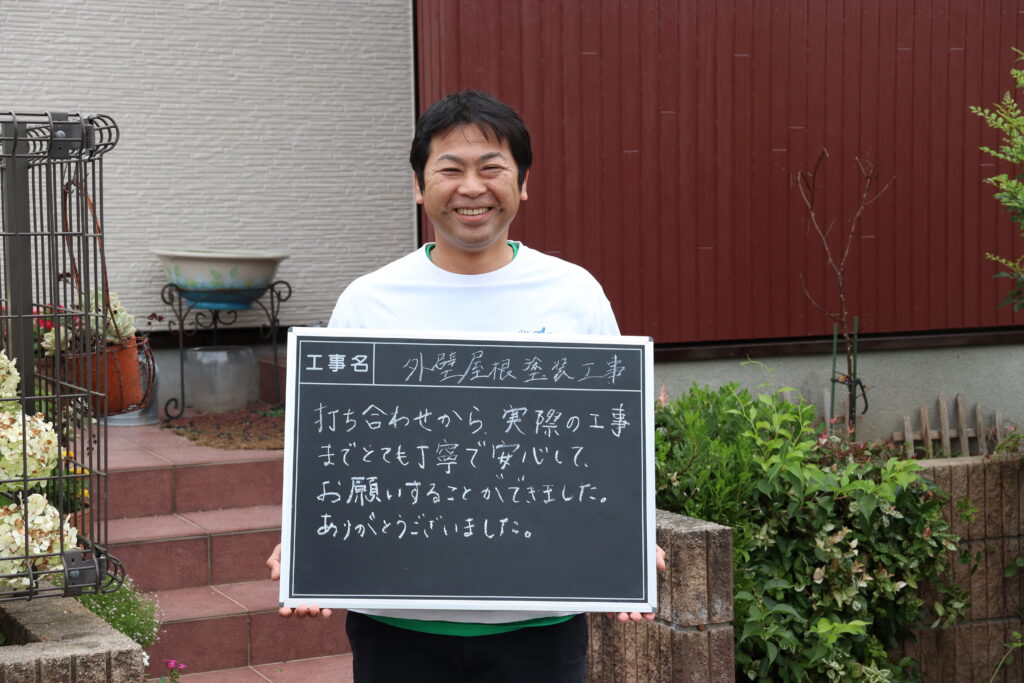 工事名 外壁屋根塗装工事
打ち合わせから、実際の工事
までとても丁寧で安心して、
お願いすることができました。
ありがとうございました。